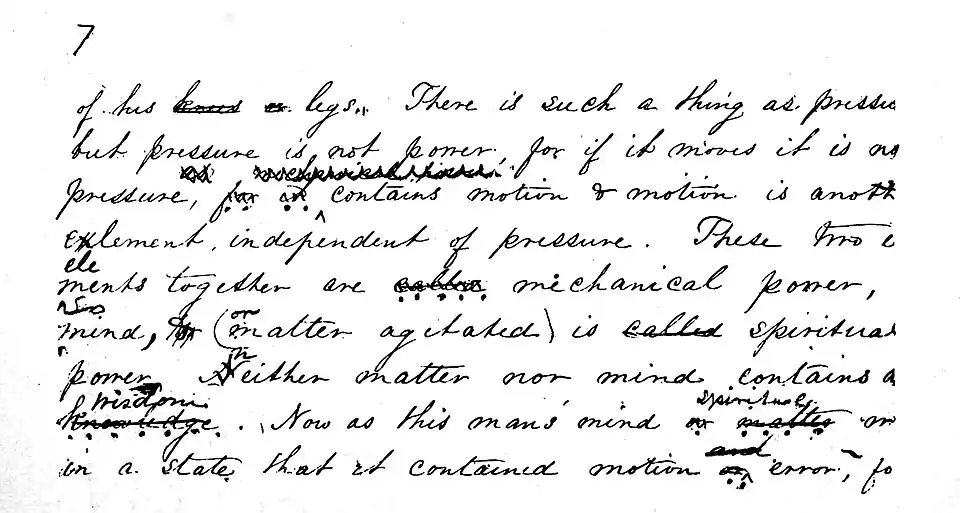 7
of his knees legs. There is such a thing as pressu
but pressure is not power, for if it moves it is no
pressure, for it contains motion & motion is anoth
exlement, independent of pressure. These two e
ele
ments together are called mechanical power,
So
or
mind, (matter agitated) is called spiritual
n
power Neither matter nor mind contains a
Wisdom spiritual
knowledge. Now as this man's mind or matter
and
in a state that it contained motion or error, fo